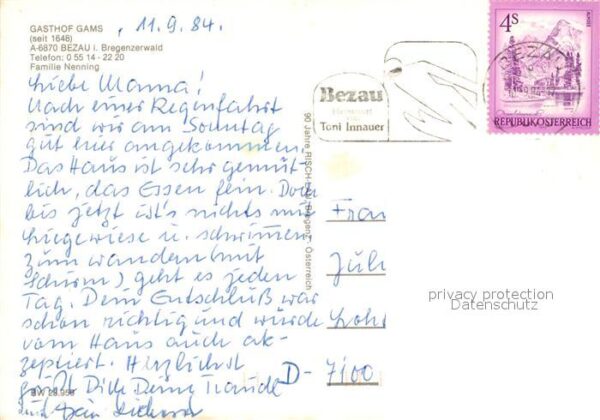 GASTHOF GAMS
(seit 1648)
A-6870 BEZAU i. Bregenzerwald
Telefon: 0 55 14 - 22 20
Familie Nenning
, 11.9.84.
Liebe Mamma!
Nach einer Regenfahrt
sind wir am Sonntag
gut hier angekommen.
Das Haus ist sehr gemüt-
lich, das Essen fein. Doch
bis jetzt ist's nichts mit
Liegewiese u. schwimmen
zum wandern (mit
Schirm) geht es jeden
Tag. Dein Entschluß war
schon richtig und würde
vom Haus auch ak-
zeptiert. Herzlichst
grüßt Dich Deine Traudl
und Dein
BW
90 Jahre RISCH-LAU, Bregenz, Österreich
Bezau
Heimatort
Toni Innauer
BEZAU
4S
REPUBLIK ÖSTERREICH
Frau
Juli
Lohr
D- 7100
privacy protection
Datenschutz